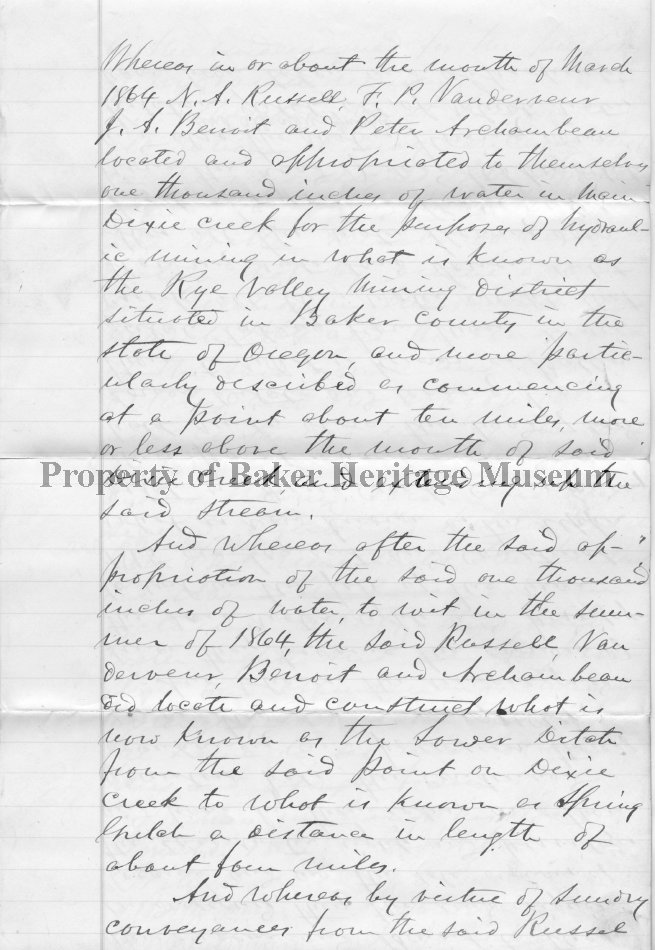 Whereas in or about the month of March
1864 N. A. Russell, F. P. Vanderveur
J. A. Benoit and Peter Archambeau
located and appropriated to themselves
one thousand inches of water in Main
Dixie creek for the purposes of hydraul-
ic mining in what is known as
the Rye Valley Mining District
situated in Baker County in the
state of Oregon, and more partic-
ularly described as commencing
at a point about ten miles, more
or less above the mouth of said
Dixie Creek, and extending up the
Property of Baker Heritage Museum
said stream.
And whereas after the said ap-
propriation of the said one thousand
inches of water, to wit in the sum-
mer of 1864, the said Russell, Van
derveur, Benoit and Archambeau
did locate and construct what is
now known as the Lower Ditch
from the said point on Dixie
creek to what is known as Spring
Gulch a distance in length of
about four miles.
And whereas by virtue of sundry
conveyances from the said Russel